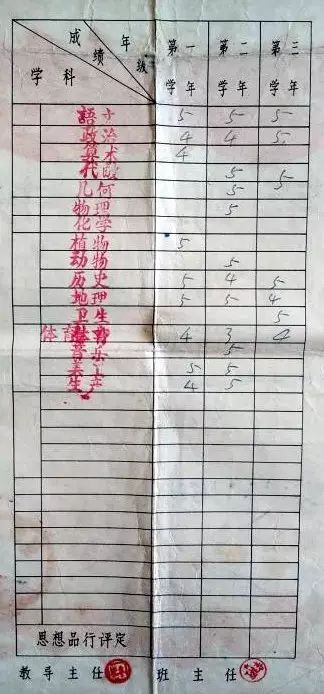 成绩 年级 学科 第一学年 第二学年 第三学年
語 5 5 5
政治 4 4 5
算术 4
代 5 5
几何 5 5
物理 5
化学
植物 5
动物 5
历史 5 4 5
地理 5 5 4
卫生 5
体育 4 3 4
音乐 5
5 5
生产 4 5
思想品行评定
教导主任 班主任